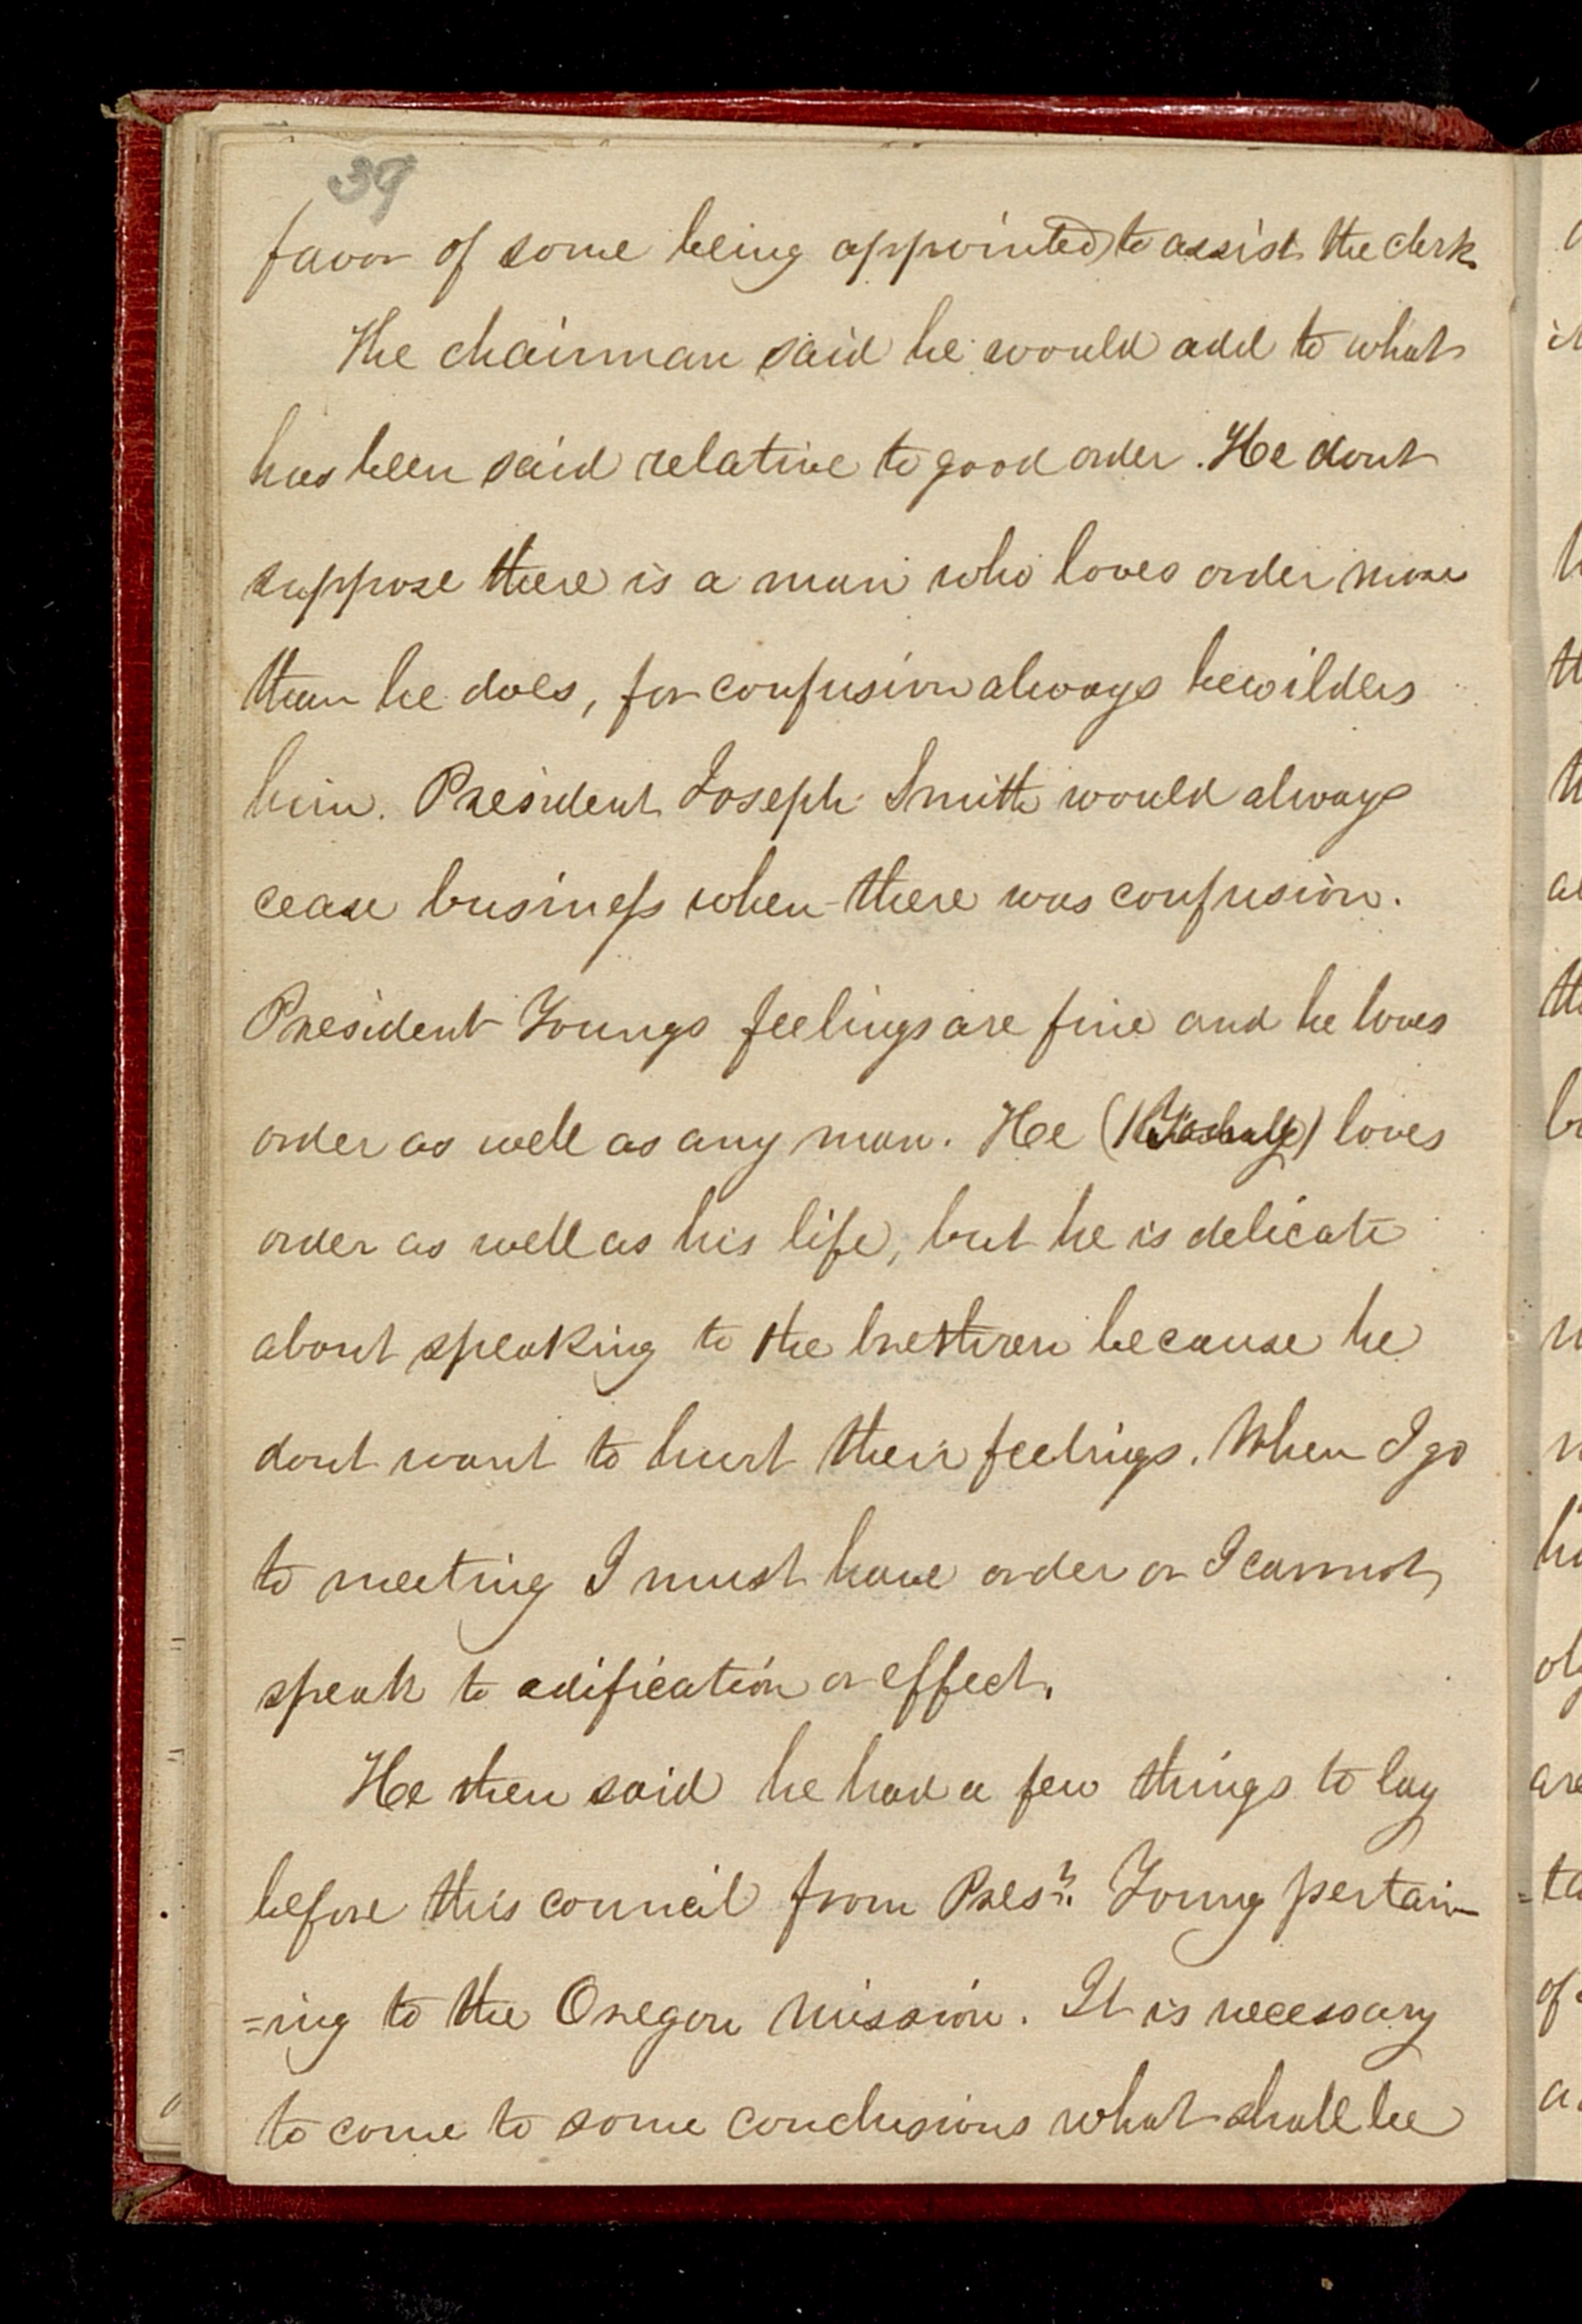 39
favor of some being appointed to assist the clerk.
The chairman said he would add to what
has been said relative to good order. He dont
suppose there is a man who loves order more
than he does, for confusion always bewilders
him. President Joseph Smith would always
cease business when there was confusion.
President Youngs feelings are fine and he loves
order as well as any man. He ( ) loves
order as well as his life, but he is delicate
about speaking to the brethren because he
dont want to hurt their feelings. When I go
to meeting I must have order or I cannot
speak to edification or effect.
He then said he had a few things to lay
before this council from Pres.^t Young pertain-
=ing to the Oregon mission. It is necessary
to come to some conclusions what shall be